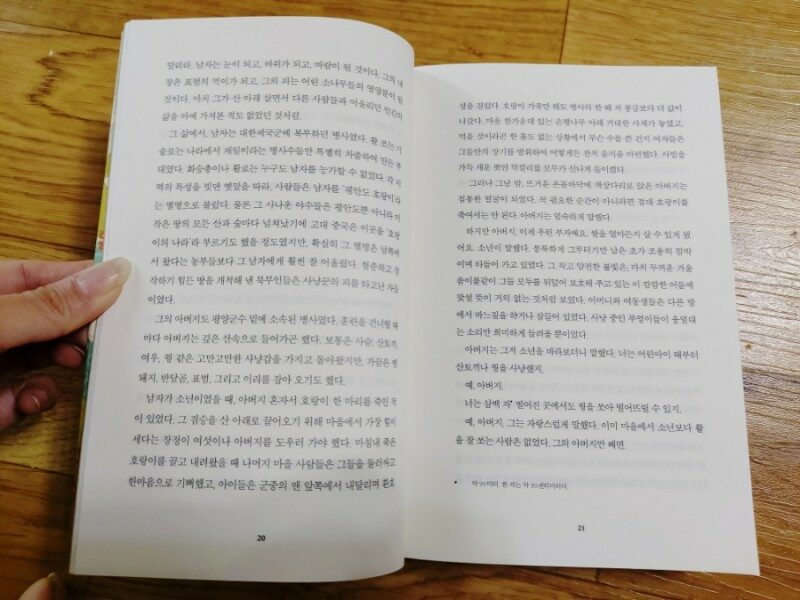 말리라. 남자는 눈이 되고, 바위가 되고, 바람이 될 것이다. 그의 내
장은 표범의 먹이가 되고, 그의 피는 어린 소나무들의 영양분이 될
것이다. 마치 그가 산 아래 살면서 다른 사람들과 어울리던 인간의
삶을 아예 가져본 적도 없었던 것처럼.
그 삶에서, 남자는 대한제국군에 복무하던 병사였다. 활 쏘는 기
술로는 나라에서 제일이라는 명사수들만 특별히 차출하여 만든 부
대였다. 화승총이나 활로는 누구도 남자를 능가할 수 없었다. 각 지
역의 특성을 빗댄 옛말을 따라, 사람들은 남자를 '평안도 호랑이'라
는 별명으로 불렀다. 물론 그 사나운 야수들은 평안도뿐 아니라 이
작은 땅의 모든 산과 숲마다 넘쳐났기에 고대 중국은 이곳을 '호랑
이의 나라'라 부르기도 했을 정도였지만, 확실히 그 별명은 남쪽에
서 왔다는 농부들보다 그 남자에게 훨씬 잘 어울렸다. 험준하고 경
작하기 힘든 땅을 개척해 낸 북부인들은 사냥꾼의 피를 타고난 자들
이었다.
그의 아버지도 평양군수 밑에 소속된 병사였다. 훈련을 건너뛸 때
마다 아버지는 깊은 산속으로 들어가곤 했다. 보통은 사슴, 산토끼,
여우, 꿩 같은 고만고만한 사냥감을 가지고 돌아왔지만, 가끔은 멧
돼지, 반달곰, 표범, 그리고 이리를 잡아 오기도 했다.
남자가 소년이었을 때, 아버지 혼자서 호랑이 한 마리를 죽인 적
이 있었다. 그 짐승을 산 아래로 끌어오기 위해 마을에서 가장 힘이
세다는 장정이 여섯이나 아버지를 도우러 가야 했다. 마침내 죽은
호랑이를 끌고 내려왔을 때 나머지 마을 사람들은 그들을 둘러싸고
한마음으로 기뻐했고, 아이들은 군중의 맨 앞쪽에서 내달리며 환호
20
성을 질렀다. 호랑이 가죽만 해도 병사의 한 해 치 봉급보다 더 값이
나갔다. 마을 한가운데 있는 은행나무 아래 거대한 사체가 놓였고,
먹을 것이라곤 한 톨도 없는 상황에서 무슨 수를 쓴 건지 여자들은
그들만의 장기를 발휘하여 어떻게든 잔치 음식을 마련했다. 사발을
가득 채운 뽀얀 막걸리를 모두가 신나게 들이켰다.
그러나 그날 밤, 뜨거운 온돌바닥에 책상다리로 앉은 아버지는
침통한 얼굴이 되었다. 꼭 필요한 순간이 아니라면 절대 호랑이를
죽여서는 안 된다. 아버지는 엄숙하게 말했다.
하지만 아버지, 이제 우린 부자예요. 쌀을 얼마든지 살 수 있게 됐
어요. 소년이 말했다. 뭉툭하게 그루터기만 남은 초가 조용히 깜박
이며 타들어 가고 있었다. 그 작고 얌전한 불빛은, 마치 두꺼운 거울
솜이불같이 그들 모두를 뒤덮어 보호해 주고 있는 이 캄캄한 어둠에
맞설 뜻이 거의 없는 것처럼 보였다. 어머니와 여동생들은 다른 방
에서 바느질을 하거나 잠들어 있었다. 사냥 중인 부엉이들이 웅얼대
는 소리만 희미하게 들려올 뿐이었다.
아버지는 그저 소년을 바라보더니 말했다. 너는 어린아이 때부터
산토끼나 꿩을 사냥했지.
예, 아버지.
너는 삼백 자* 떨어진 곳에서도 꿩을 쏘아 떨어뜨릴 수 있지.
예, 아버지. 그는 자랑스럽게 말했다. 이미 마을에서 소년보다 활
을 잘 쏘는 사람은 없었다. 그의 아버지만 빼면.
* 약 90미터. 한 자는 약 30센티미터다.
21